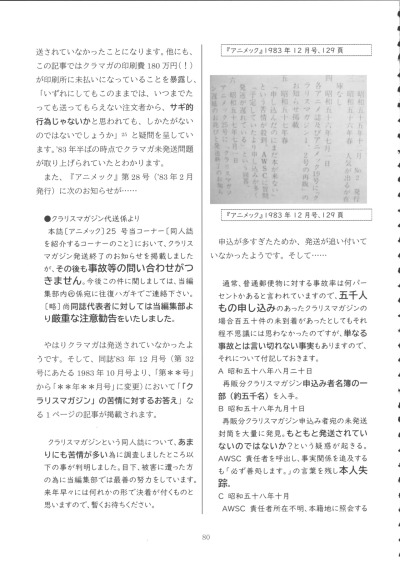 送されていなかったことになります。他にも、
この記事ではクラマガの印刷費 180 万円(！)
が印刷所に未払いになっていることを暴露し、
「いずれにしてもこのままでは、いつまでた
っても送ってもらえない注文者から、サギ的
行為じゃないかと思われても、しかたがない
のではないでしょうか」²⁵ と疑問を呈してい
ます。'83 年半ばの時点でクラマガ未発送問題
が取り上げられていたとわかります。
また、『アニメック』第 28 号（'83 年 2 月
発行）に次のお知らせが……
●クラリスマガジン代送係より
本誌［アニメック］25 号当コーナー［同人誌
を紹介するコーナーのこと］において、クラリス
マガジン発送終了のお知らせを掲載しました
が、その後も事故等の問い合わせがつ
きません。今後この件に関しましては、当編
集部内㊞係宛に往復ハガキでご連絡下さい。
［略］尚同誌代表者に対しては当編集部よ
り厳重な注意勧告をいたしました。
やはりクラマガは発送されていなかったよ
うです。そして、同誌'83 年 12 月号（第 32
号にあたる 1983 年 10 月号より、「第**号」
から「**年**月号」に変更）において「「ク
ラリスマガジン」の苦情に対するお答え」な
る 1 ページの記事が掲載されます。
クラリスマガジンという同人誌について、あま
りにも苦情が多い為に調査しましたところ以
下の事が判明しました。目下、被害に遭った方
の為に当編集部では最善の努力をしています。
来年早々には何れかの形で決着が付くものと
思いますので、暫くお待ちください。
『アニメック』1983 年 12 月号、129 頁
『アニメック』1983 年 12 月号、129 頁
申込が多すぎたためか、発送が追い付いて
いなかったようです。そして……
通常、普通郵便物に対する事故率は何パー
セントかあると言われていますので、五千人
もの申し込みのあったクラリスマガジンの
場合百五十件の未到着があったとしてもそれ
程不思議には思わなかったのですが、単なる
事故とは言い切れない事実もありますので、
それについて付記しておきます。
A 昭和五十八年八月二十日
再販分クラリスマガジン申込み者名簿の一
部（約五千名）を入手。
B 昭和五十八年九月十日
再販分クラリスマガジン申込み者宛の未発送
封筒を大量に発見。もともと発送されてい
ないのではないか？という疑惑が起きる。
AWSC 責任者を呼出し、事実関係を追及する
も「必ず善処します。」の言葉を残し本人失
踪。
C 昭和五十八年十月
AWSC 責任者所在不明、本籍地に照会する
80